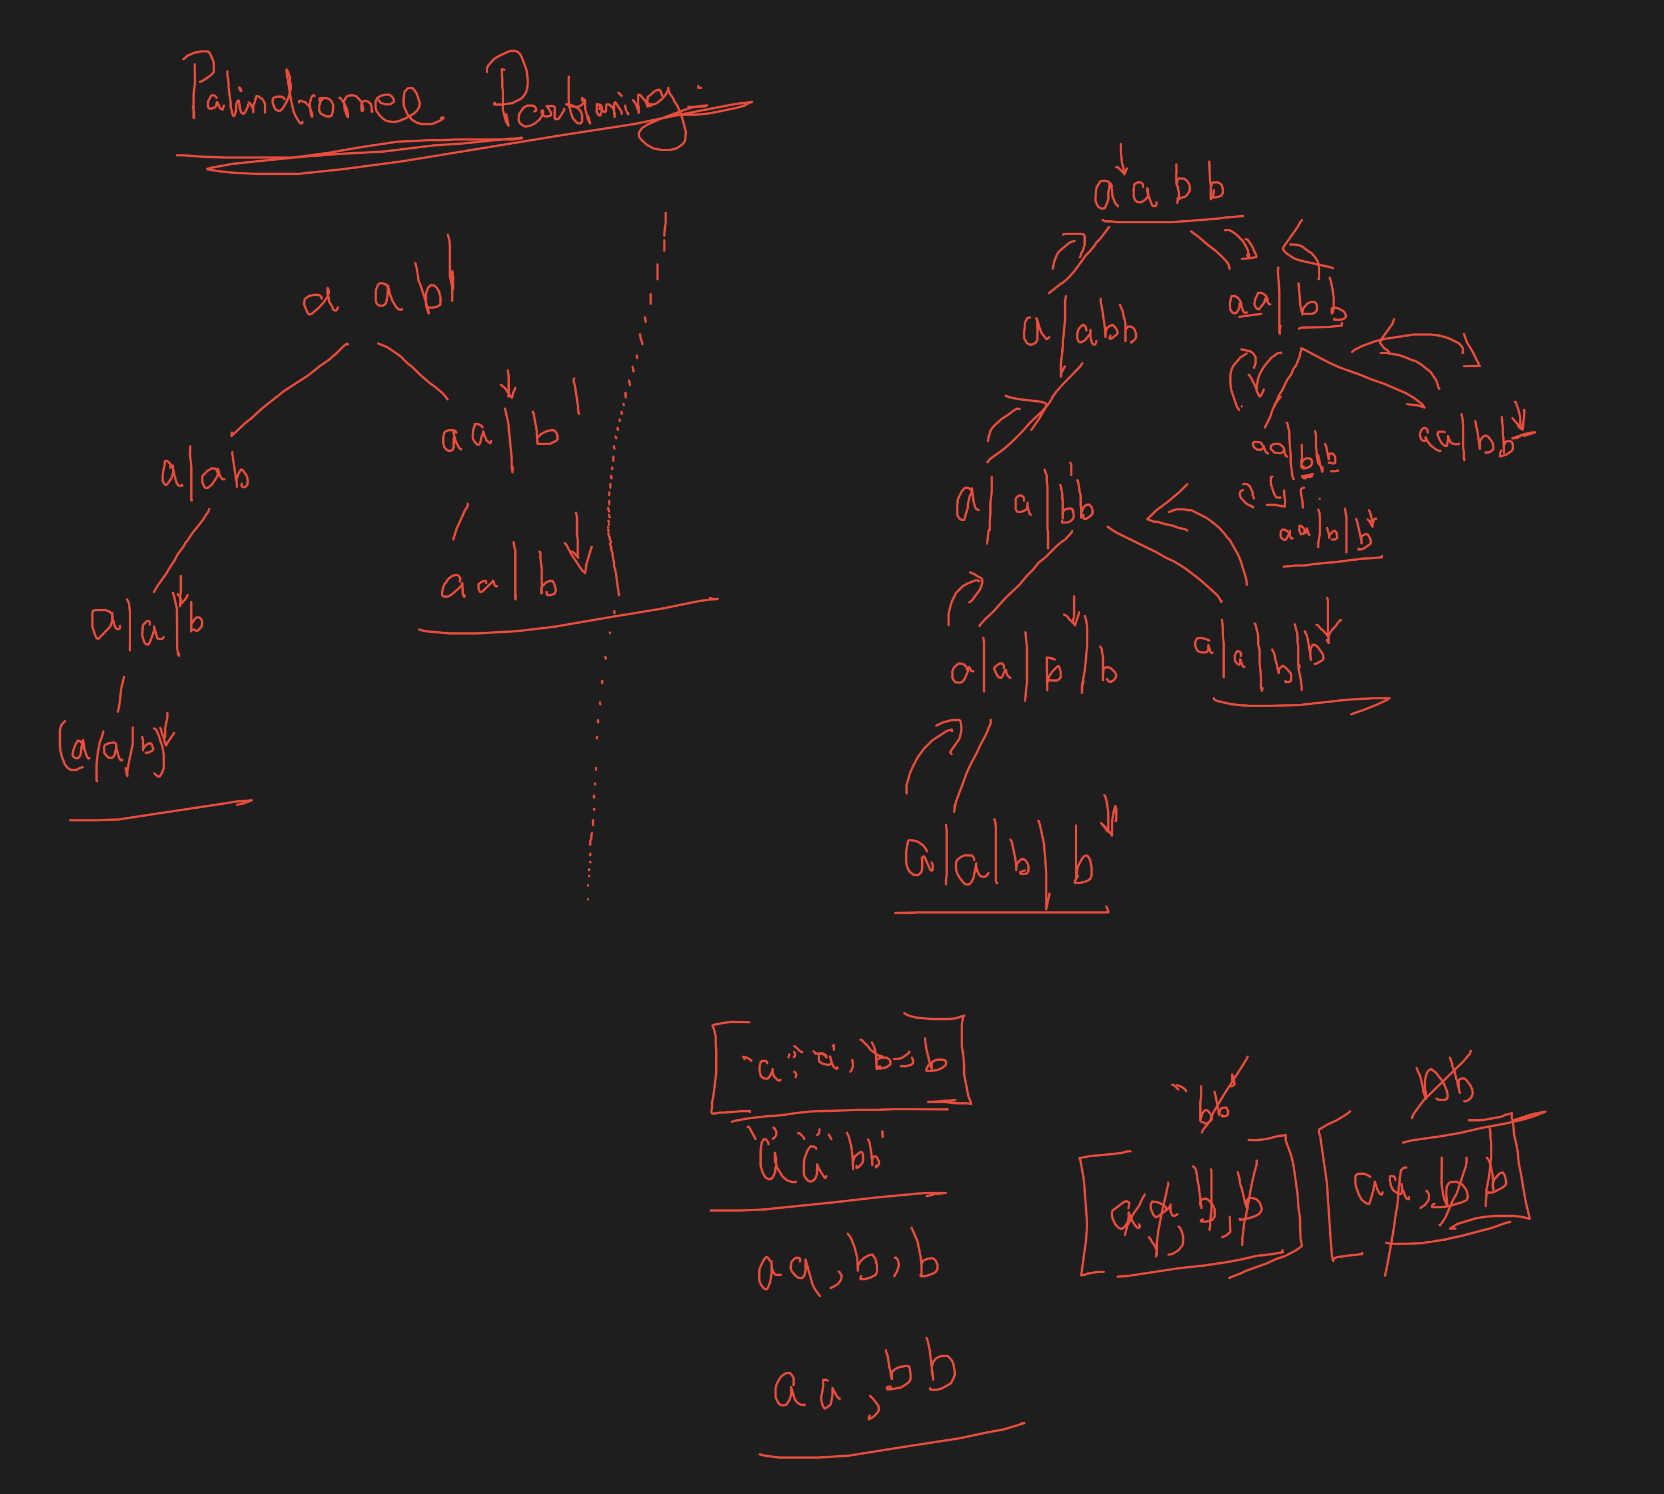 Palindrome Partraning.
a a b|
a|ab
aa|b
a|a|b
aa|b
(a|a|b)
a a b b
a|abb
aa|bb
a|a|bb
aa|b|b
aa|bb
aa|b|b
a|a|b|b
a|a|b|b
a|a|b|b
["a", "a", b, b]
"a" "a" bb
aa, b, b
aa, bb
"bb"
[aa, b, b]
bb
[aa, b b]